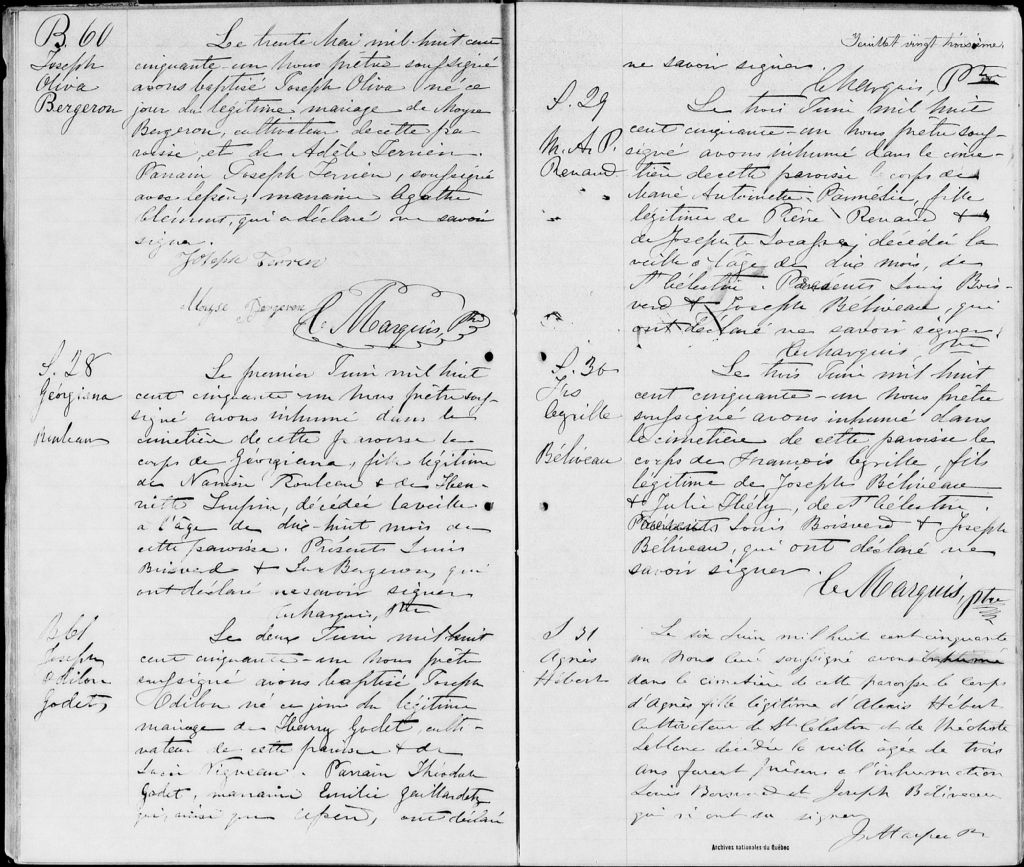 B. 60
Joseph
Oliva
Bergeron
Le trente Mai mil-huit cent
cinquante-un Nous prêtre soussigné
avons baptisé Joseph Oliva né ce
jour du légitime mariage de Moyse
Bergeron, cultivateur de cette pa-
roisse et de Adèle Terrien.
Parrain Joseph Terrien, soussigné
avec le père, marraine Agathe
Clément, qui a déclaré ne savoir
signer.
Joseph Terrien
Moyse Bergeron
C. Marquis, Ptre
S. 28
Géorgiana
Rouleau
Le premier Juin mil huit
cent cinquante-un Nous prêtre sous-
signé avons inhumé dans le
cimetière de cette paroisse le
corps de Géorgiana, fille légitime
de Rouleau & de Hen-
riette décédée la veille
a l'âge de dix-huit mois de
cette paroisse. Présents Louis
Boisverd & Luc Bergeron, qui
ont déclaré ne savoir signer
C. Marquis, Ptre
B. 61
Joseph
Odilon
Godet
Le deux Juin mil huit
cent cinquante-un Nous prêtre
soussigné avons baptisé Joseph
Odilon né ce jour du légitime
mariage de Henry Godet, culti-
vateur de cette paroisse & de
Vigneau. Parrain Théodule
Godet, marraine Emilie Gaillardetz
qui, ainsi que le père, ont déclaré
Feuillet vingt troisième.
ne savoir signer
C. Marquis, Ptre
S. 29
M. A. P.
Renaud
Le trois Juin mil huit
cent cinquante-un Nous prêtre sous-
signé avons inhumé dans le cime-
tière de cette paroisse le corps de
Marie Antoinette fille
légitime de Renaud &
de Josephte décédée la
veille a l'âge de dix mois, de
St Célestin. Présents Louis Bois-
verd & Joseph Béliveau, qui
ont déclaré ne savoir signer.
C. Marquis, Ptre
S. 30
Frs
Cyrille
Béliveau
Le trois Juin mil huit
cent cinquante-un Nous prêtre
soussigné avons inhumé dans
le cimetière de cette paroisse le
corps de François Cyrille, fils
légitime de Joseph Béliveau
& Julie de St Célestin.
Présents Louis Boisverd & Joseph
Béliveau, qui ont déclaré ne
savoir signer.
C. Marquis, ptre
S 31
Agnès
Hébert
Le six Juin mil huit cent cinquante
un Nous Curé soussigné avons inhumé
dans le cimetière de cette paroisse le corps
d'Agnès fille légitime d'Alexis Hébert
cultivateur de St Célestin et de Théotiste
Leblanc décédée la veille agée de trois
ans furent présens a l'inhumation
Louis Boisverd et Joseph Béliveau
qui n'ont su signer
Ptr
Archives nationales du Québec